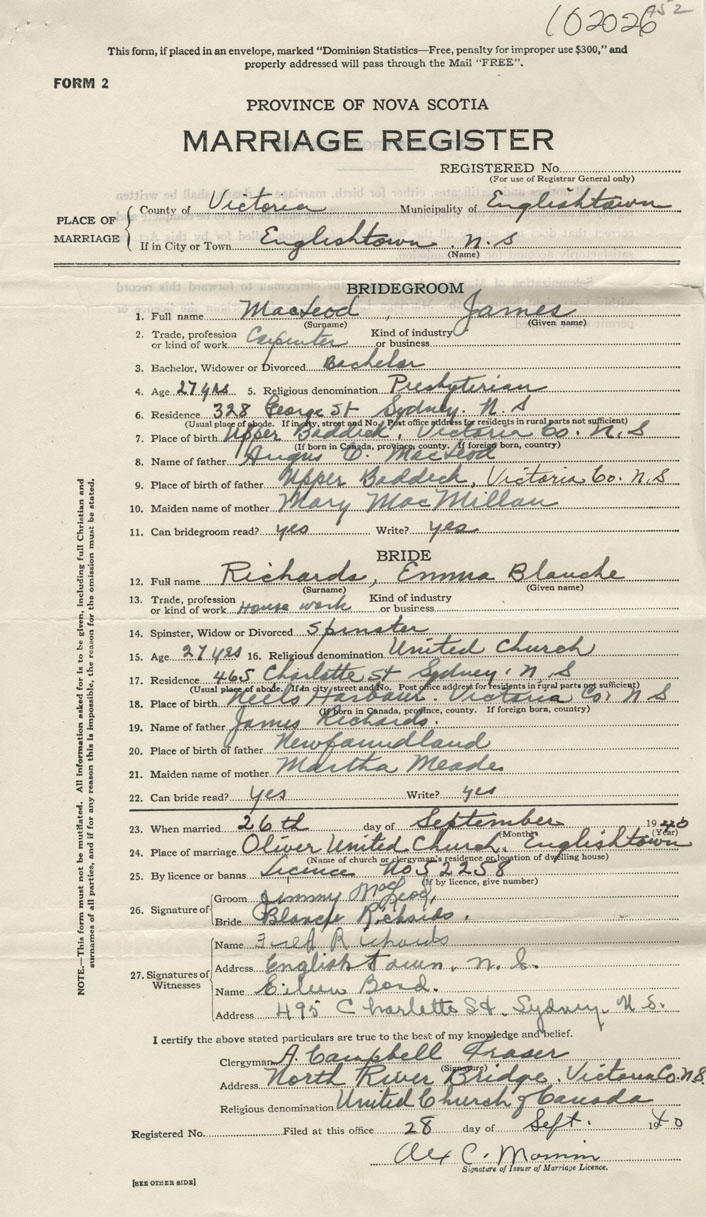 102026 A52
This form, if placed in an envelope, marked "Dominion Statistics—Free, penalty for improper use $300," and
properly addressed will pass through the Mail "FREE".
FORM 2
PROVINCE OF NOVA SCOTIA
MARRIAGE REGISTER
REGISTERED No.
(For use of Registrar General only)
PLACE OF MARRIAGE
County of Victoria Municipality of Englishtown
If in City or Town Englishtown N.S
(Name)
BRIDEGROOM
1. Full name MacLeod, James
(Surname) (Given name)
2. Trade, profession or kind of work Carpenter Kind of industry or business
3. Bachelor, Widower or Divorced Bachelor
4. Age 27 yrs 5. Religious denomination Presbyterian
6. Residence 328 George St Sydney. N.S
(Usual place of abode. If in city, street and No. Post office address for residents in rural parts not sufficient)
7. Place of birth Upper Baddeck, Victoria Co. N.S
(If born in Canada, province, county. If foreign born, country)
8. Name of father Angus C. MacLeod
9. Place of birth of father Upper Baddeck, Victoria Co. N.S
10. Maiden name of mother Mary MacMillan
11. Can bridegroom read? yes Write? yes
BRIDE
12. Full name Richards, Emma Blanche
(Surname) (Given name)
13. Trade, profession or kind of work House work Kind of industry or business
14. Spinster, Widow or Divorced Spinster
15. Age 27 yrs 16. Religious denomination United Church
17. Residence 465 Charlotte St Sydney. N.S
(Usual place of abode. If in city street and No. Post office address for residents in rural parts not sufficient)
18. Place of birth Neils Harbour Victoria Co. N S
(If born in Canada, province, county. If foreign born, country)
19. Name of father James Richards.
20. Place of birth of father Newfoundland
21. Maiden name of mother Martha Meade
22. Can bride read? yes Write? yes
23. When married 26th day of September 1940
(Month) (Year)
24. Place of marriage Oliver United Church, Englishtown
(Name of church or clergyman's residence or location of dwelling house)
25. By licence or banns Licence No 52258
(If by licence, give number)
26. Signature of
Groom Jimmy McLeod,
Bride Blanche Richards.
27. Signatures of Witnesses
Name Fred Richards
Address English Town, N.S.
Name Eileen Bond.
Address 495 Charlotte St. Sydney. N.S.
I certify the above stated particulars are true to the best of my knowledge and belief.
Clergyman A. Campbell Fraser
(Signature)
Address North River Bridge, Victoria Co. N.S.
Religious denomination United Church of Canada
Registered No. Filed at this office 28 day of Sept. 1940
Alex C.
Signature of Issuer of Marriage Licence.
[SEE OTHER SIDE]
NOTE.—This form must not be mutilated. All information asked for is to be given, including full Christian and
surnames of all parties, and if for any reason this is impossible, the reason for the omission must be stated.